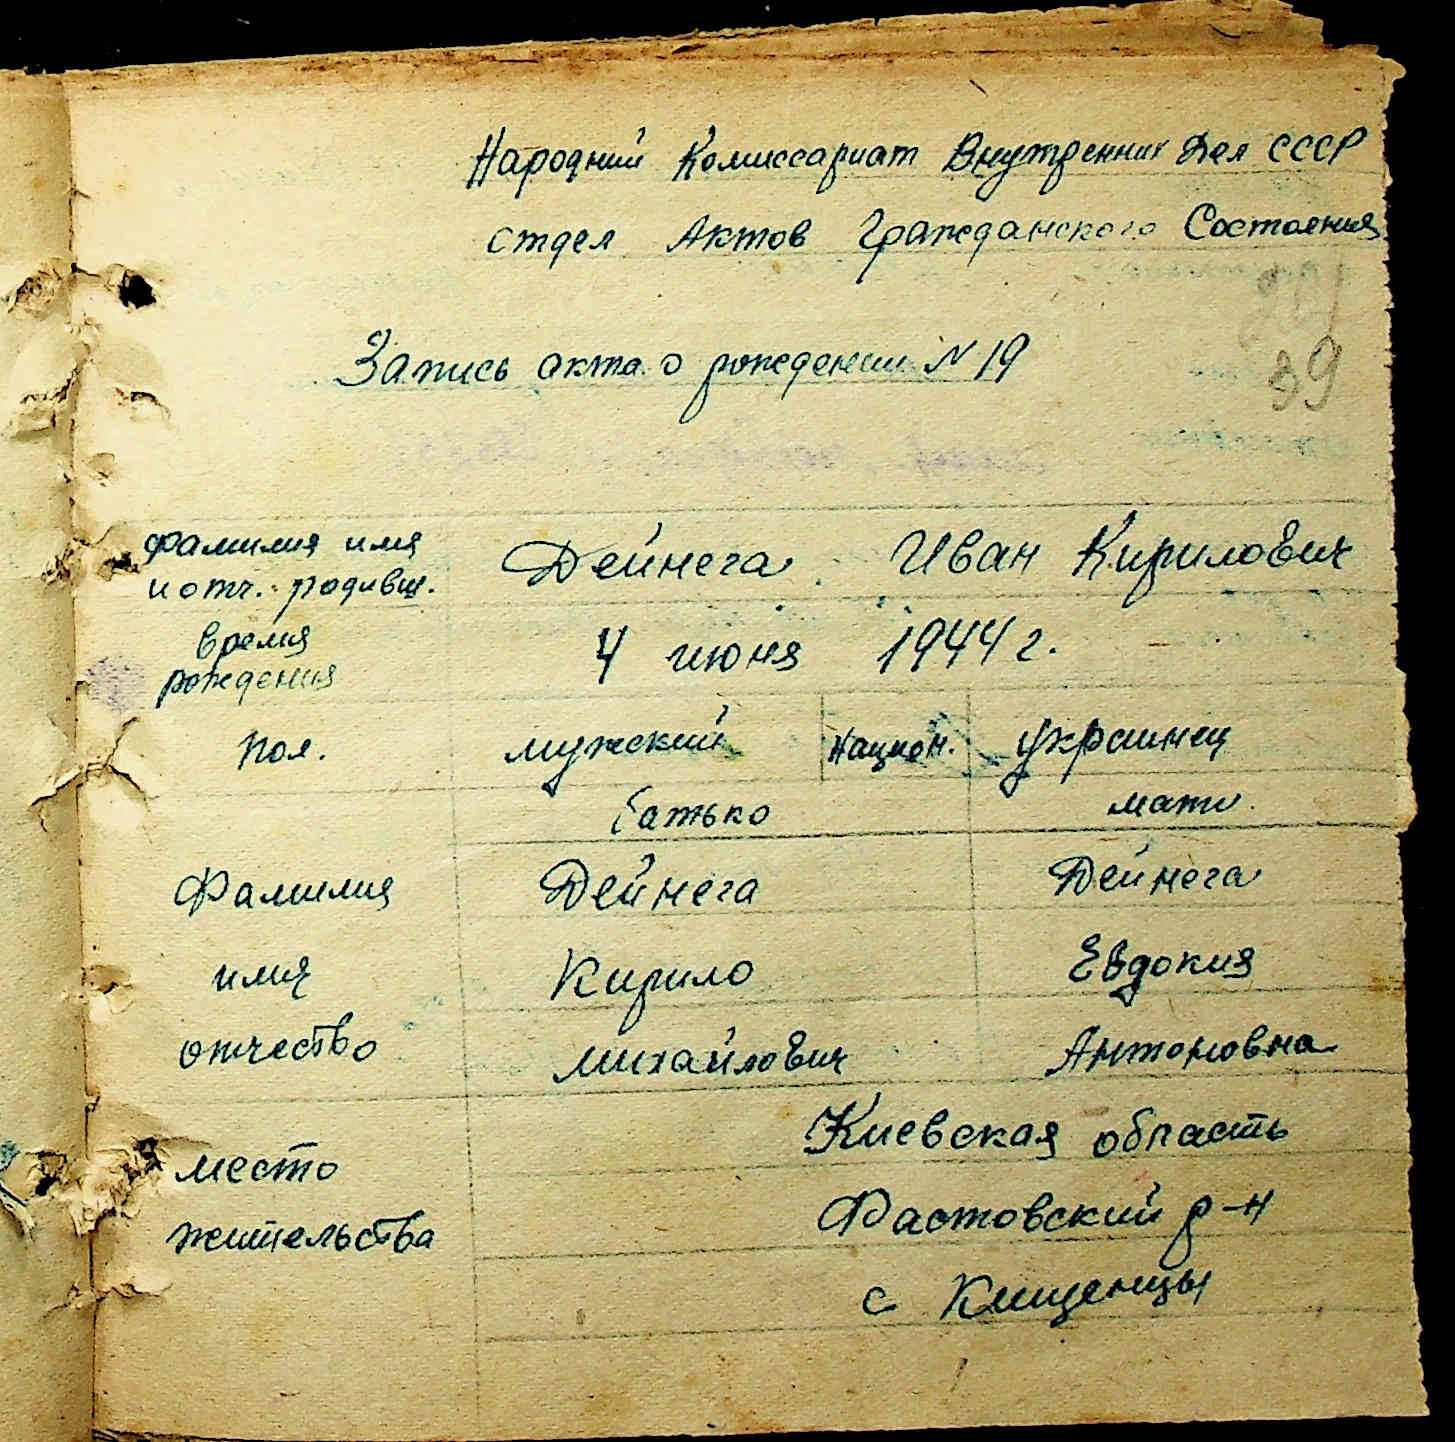 Народний Комиссариат Внутренних Дел СССР
отдел Актов Гражданского Состояния
39
Запись акта о рождении N 19
фамилия имя
и отч. родивш.
Дейнега Иван Кирилович
время
рождения
4 июня 1944 г.
пол.
мужский
национ.
украинец
батько
мати
Фамилия
Дейнега
Дейнега
имя
Кирило
Евдокия
отчество
Михайлович
Антоновна
место
жительства
Киевская область
Фастовский р-н
с Кищенцы